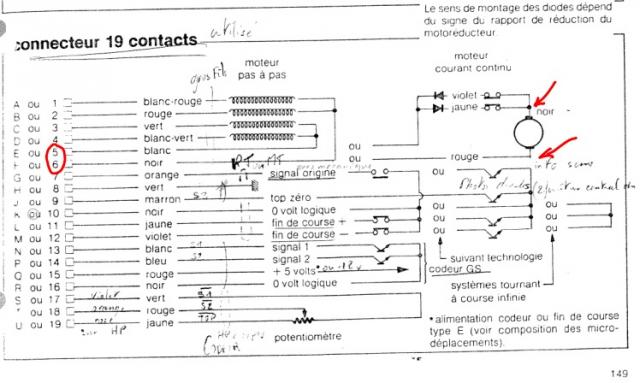 Le sens de montage des diodes dépend
du signe du rapport de réduction du
motoréducteur.
connecteur 19 contacts utilisé
moteur
pas à pas
moteur
courant continu
gros fils
A ou 1 blanc-rouge
B ou 2 rouge
C ou 3 vert
D ou 4 blanc-vert
E ou 5 blanc
F ou 6 noir
G ou 7 orange signal origine
H ou 8 vert
J ou 9 marron top zéro
K ou 10 noir 0 volt logique
L ou 11 jaune fin de course +
M ou 12 violet fin de course -
N ou 13 blanc signal 1
P ou 14 bleu signal 2
Q ou 15 rouge + 5 volts * ou 12 v
R ou 16 noir 0 volt logique
S ou 17 violet vert S1
* ou 18 orange rouge S2
U ou 19 jaune TOP
potentiomètre
violet
jaune
noir
ou
ou rouge
ou
ou
ou
ou
ou
ou
ou
ou
ou
ou
suivant technologie
codeur GS
systèmes tournant
à course infinie
*alimentation codeur ou fin de course
type E (voir composition des micro-
déplacements).
149